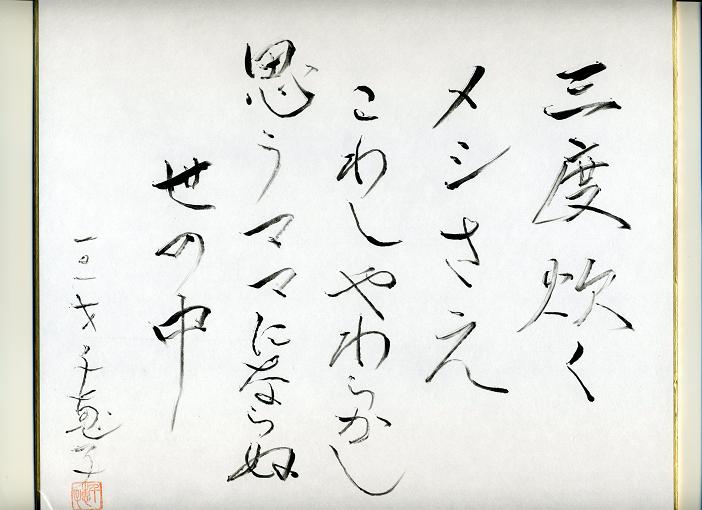 三度炊く
メシさえ
こわしやわらかし
思うママにならぬ
世の中
一〇一才 千恵子